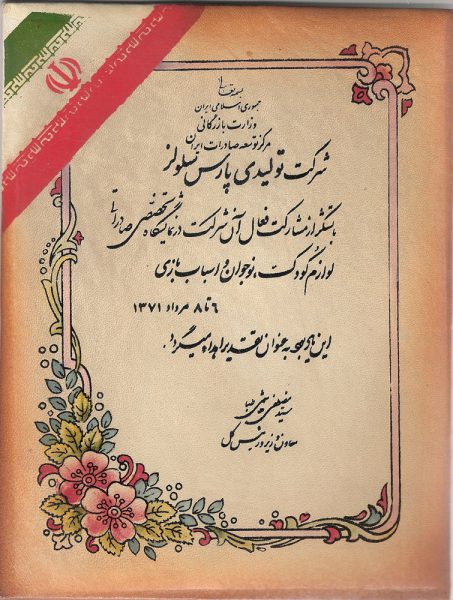 بسمه تعالی
جمهوری اسلامی ایران
وزارت بازرگانی
مرکز توسعه صادرات ایران
شرکت تولیدی پارس سلولز
با تشکر از مشارکت فعال آن شرکت در نمایشگاه تخصصی صادراتی
لوازم کودک، نوجوان و اسباب بازی
۶ تا ۸ مرداد ۱۳۷۱
این یادبود به عنوان تقدیر اهداء میگردد.
سید
معاون وزیر و رئیس کل